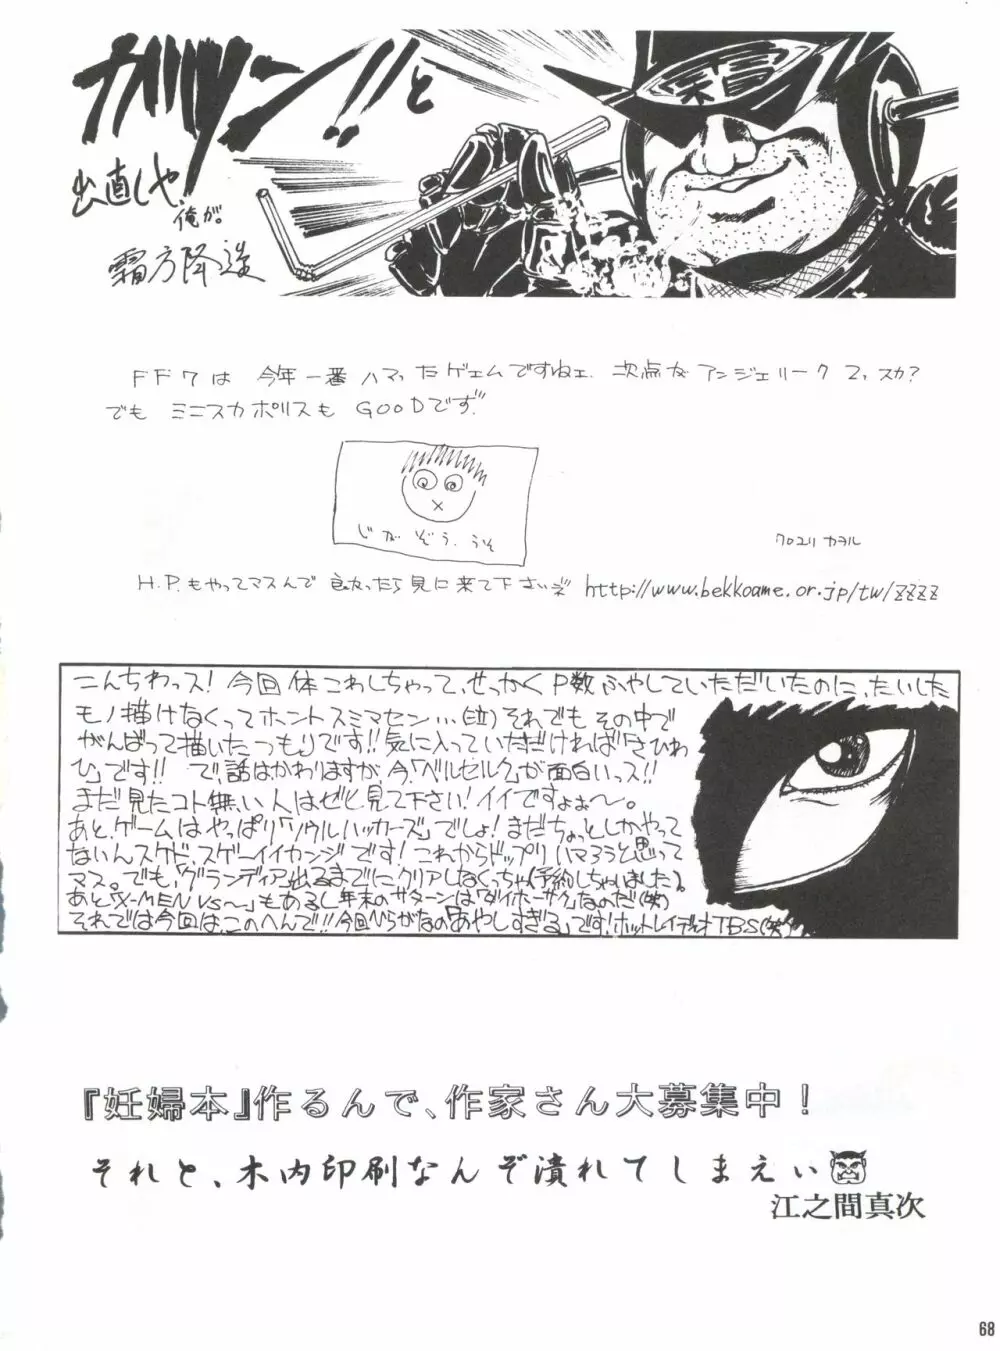 ガツン!!と
出直しや、
俺が。
霜方降造
FF7は 今年一番ハマったゲェムですねェ. 次点が アンジェリーク2っスカ?
でも ミニスカポリスも GOODです。
じがぞう. うそ
クロユリ カヲル
H.P.もやってマスんで 良かったら見に来て下さいぞ http://www.bekkoame.or.jp/tw/zzzz
こんちわっス! 今回 体こわしちゃって、せっかく P数ふやしていただいたのに、たいした
モノ描けなくってホントスミマセン…(泣) それでも その中で
がんばって描いたつもりです!! 気に入っていただければ「さひわ
ひ」です!! で、話はかわりますが、今、「ベルセルク」が面白いっス!!
まだ見たコト無い人はぜひ見て下さい! イイですよぉ〜。
あと、ゲームはやっぱり「ソウルハッカーズ」でしょ! まだちょっとしかやって
ないんスケド、スゲーイイカンジです! これからドップリハマろうと思って
マス。でも、「グランディア」出るまでにクリアしなくっちゃ(予約しちゃいました)。
あと「X-MEN VS〜」もあるし年末のサターンは「ダイホーサク」なのだ(笑)
それでは今回はこのへんで!! 今回ひらがなの「あやしすぎる」です! ホットレイディオTBS(笑)
『妊婦本』作るんで、作家さん大募集中!
それと、木内印刷なんぞ潰れてしまえぃ
江之間真次
68